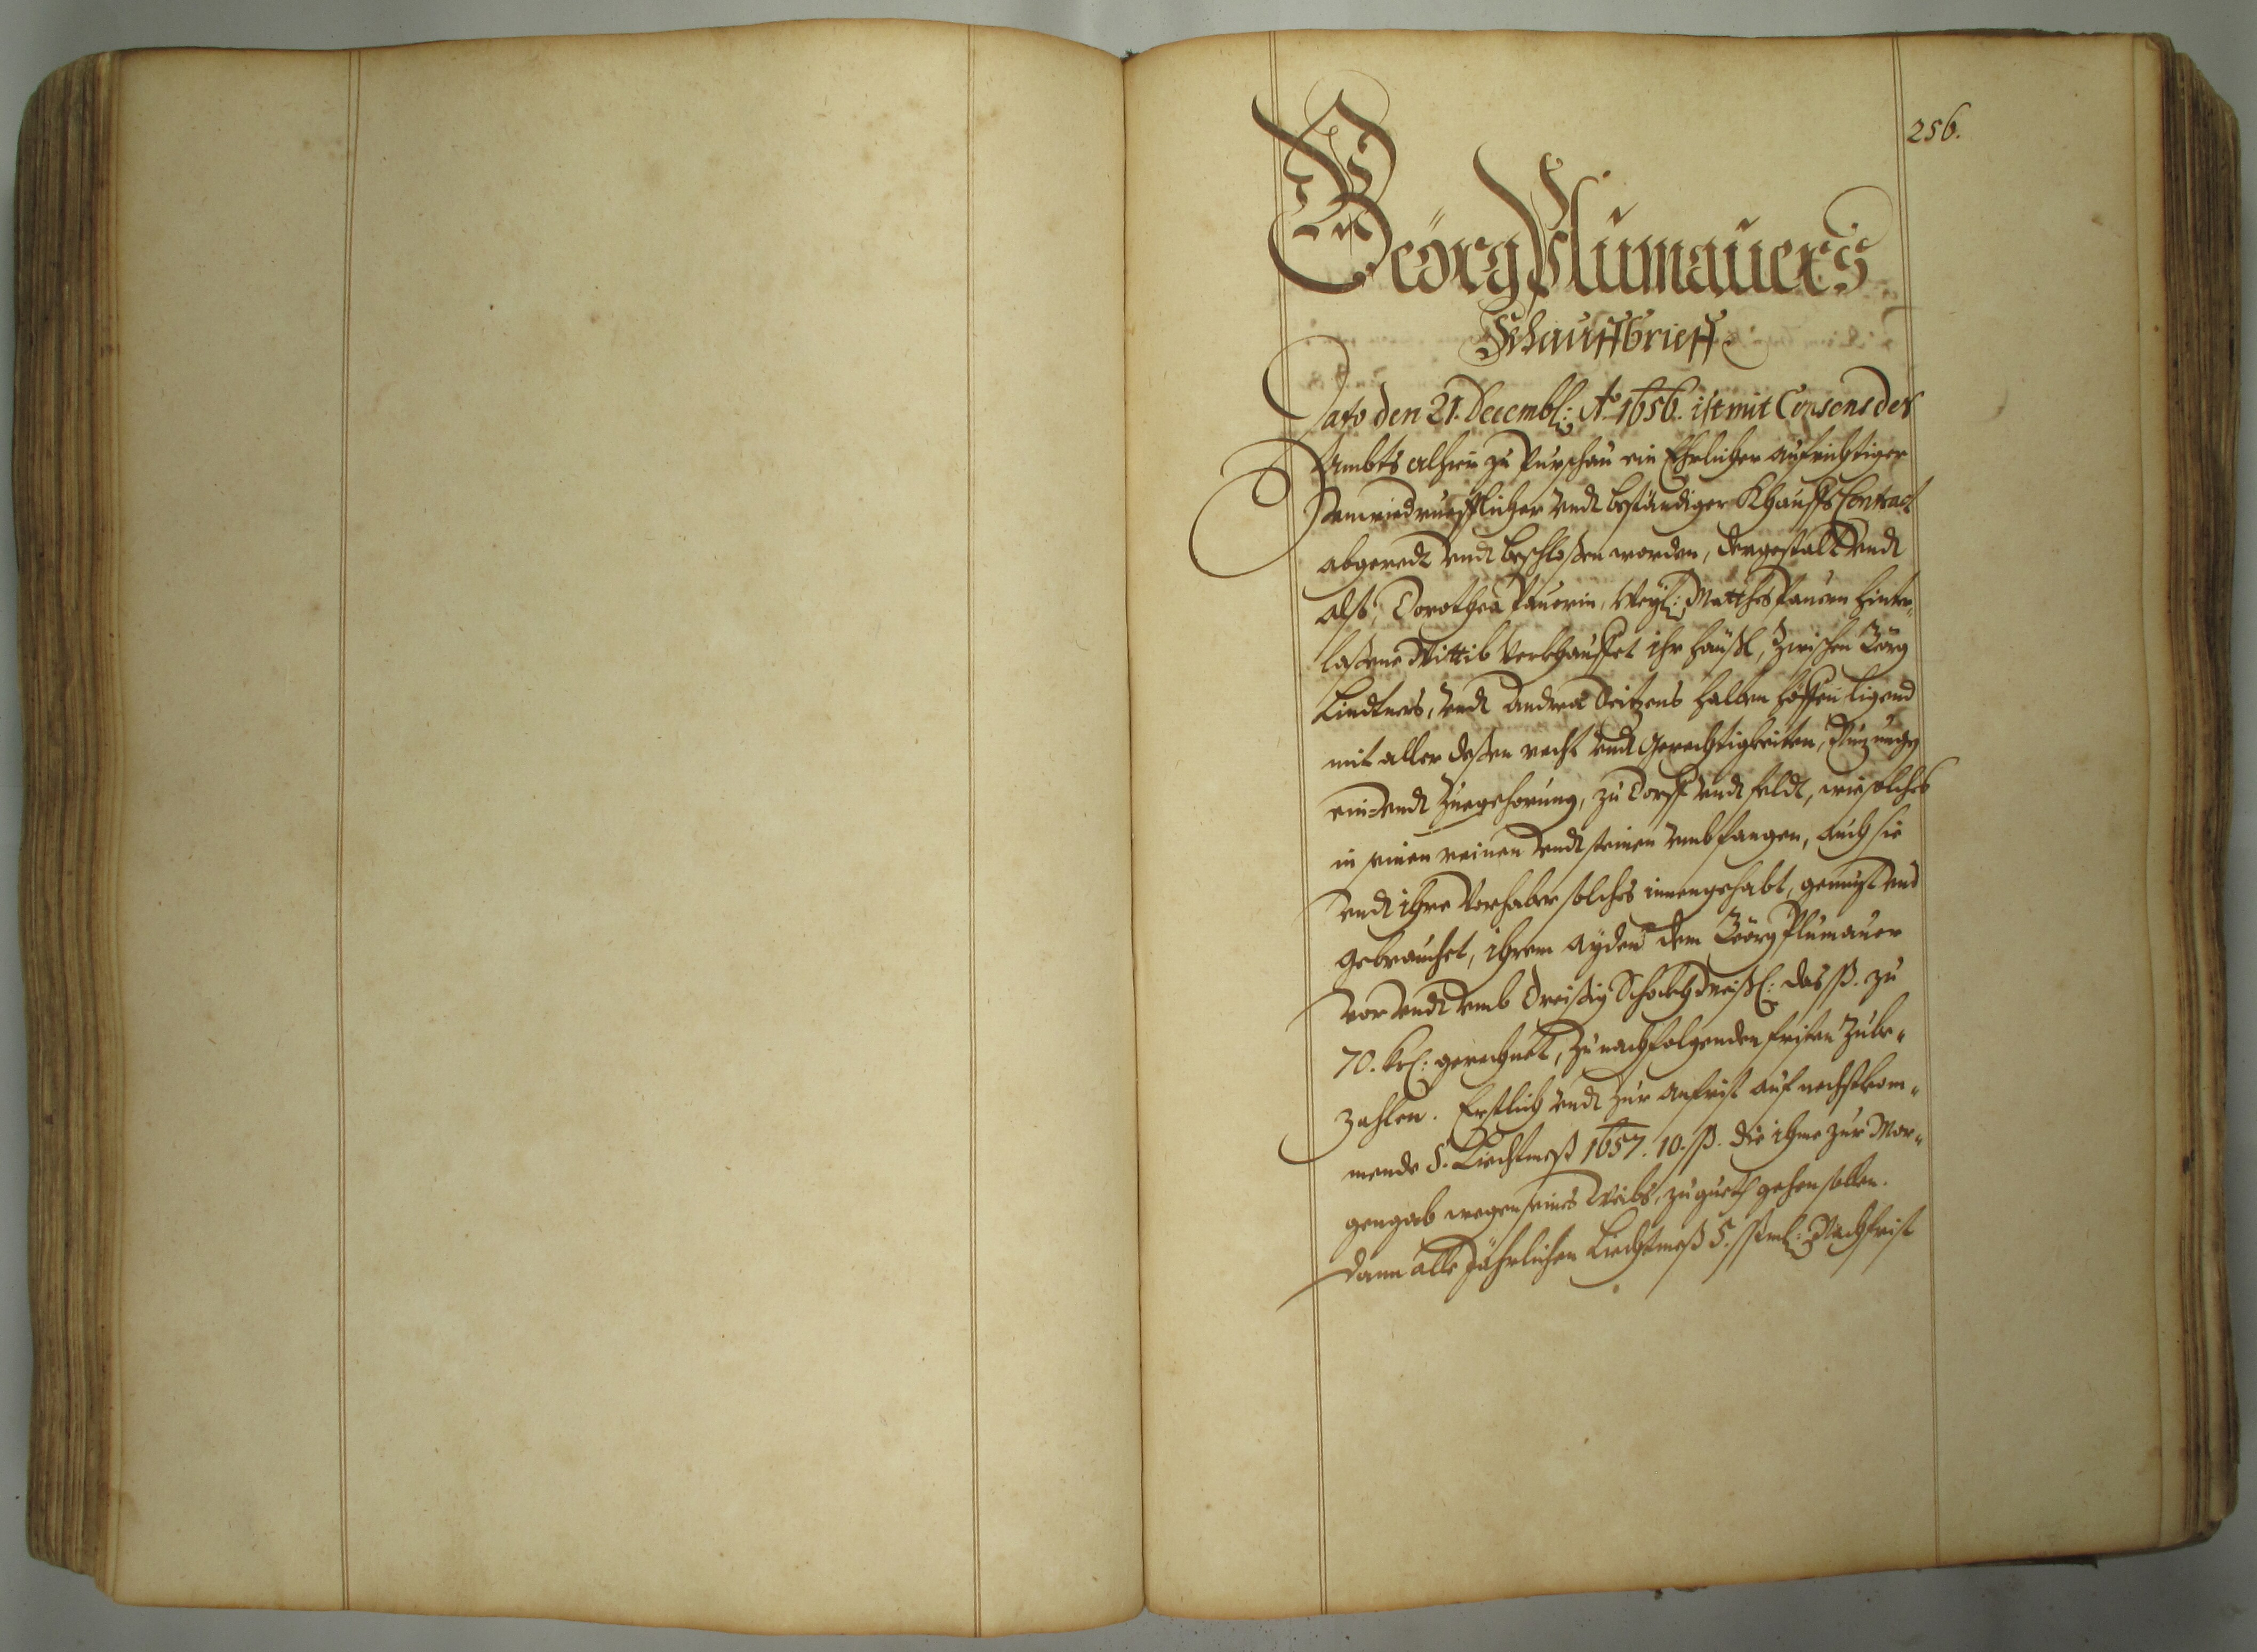 256.
Geörg Plumauers
Khauffbrieff
Dato den 21. Decembl: Aō 1656. ist mit Consens des
Ambts alhier zu Purschau ein Ehrlicher aufrichtiger
Unwiedruefflicher undt beständiger Khauffs Contract
abgeredt undt beschloßen worden, dergestalt undt
alß, Dorothea Pauerin, Weyl: Matthes Pauern hinter„
laßene Wittib verkhauffet ihr Häußl, zwischen Görg
Lindtners, undt Andrea Seitzens halben höffen ligend
mit aller deßen recht undt Gerechtigkeiten, Nuzungen
ein= undt Zuegehorung, zu Dorff undt feldt, wie solches
in seinen reinen undt steinen umbfangen, auch sie
undt ihre Vorhaber solches innengehabt, genuzt und
gebrauchet, ihrem Ayden dem Geörg Plumauer
vor undt umb Dreißig Schockh Meißl: das ß. zu
70. krl: gerechnet, zu nachfolgenden fristen zube„
zahlen. Erstlich undt zur anfrist auf nechstkom„
mende S. Liechtmeß 1657. 10. ß. die ihme zur Mor„
gengab wegen seines Weibs, zu gueth gehen sollen.
dann alle Jährlichen Liechtmeß 5. ßml: Nachfrist